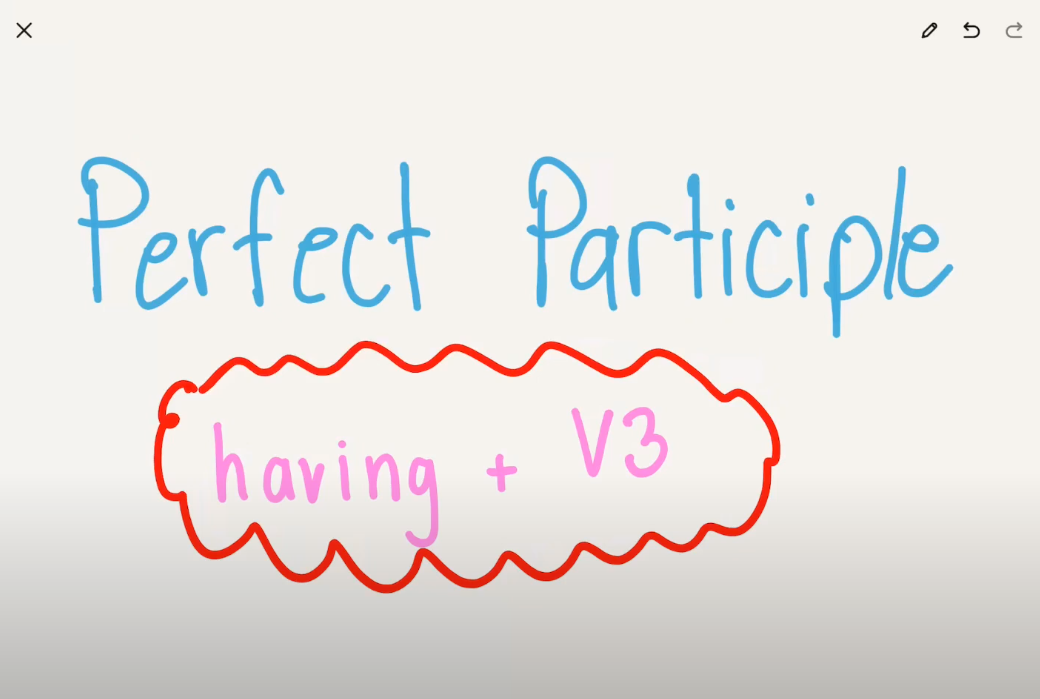 Perfect Participle
having + V3